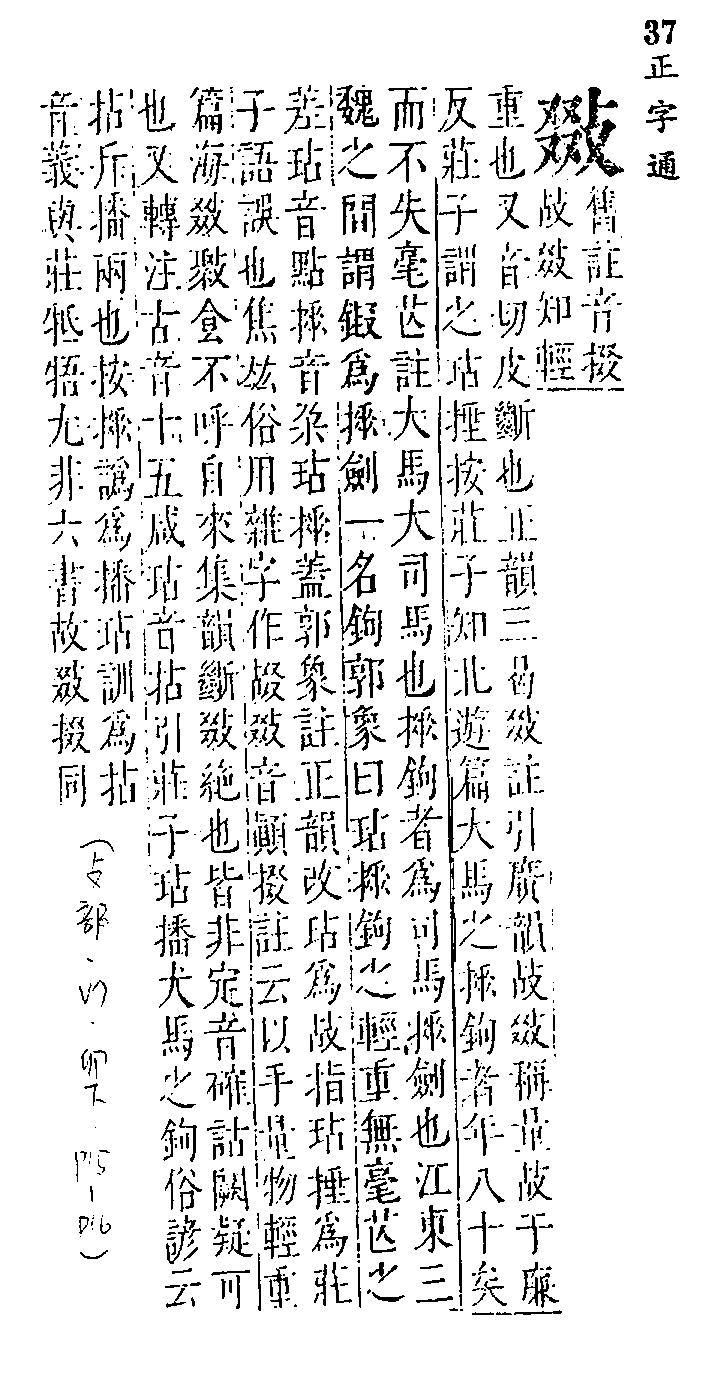 37 正字通
敠
舊註音掇
敁敠知輕
重也又音切皮斷也正韻三曷敠註引廣韻敁敠稱量敁干廉
反莊子謂之玷捶按莊子知北遊篇大馬之捶鉤者年八十矣
而不失毫芒註大馬大司馬也捶鉤者為司馬捶劍也江東三
魏之間謂鍜為捶劍一名鉤郭象曰玷捶鉤之輕重無毫芒之
差玷音點捶音朶玷捶蓋郭象註正韻改玷為敁指玷捶為莊
子語誤也焦竑俗用雜字作敁敠音顚掇註云以手量物輕重
篇海敠
不呼自來集韻斷敠絶也皆非定音確詁闕疑可
也又轉注古音十五咸玷音拈引莊子玷播犬馬之鉤俗諺云
拈斤播兩也按捶譌為播玷訓為拈
音義與莊牴牾尢非六書故敠掇同
(攴部